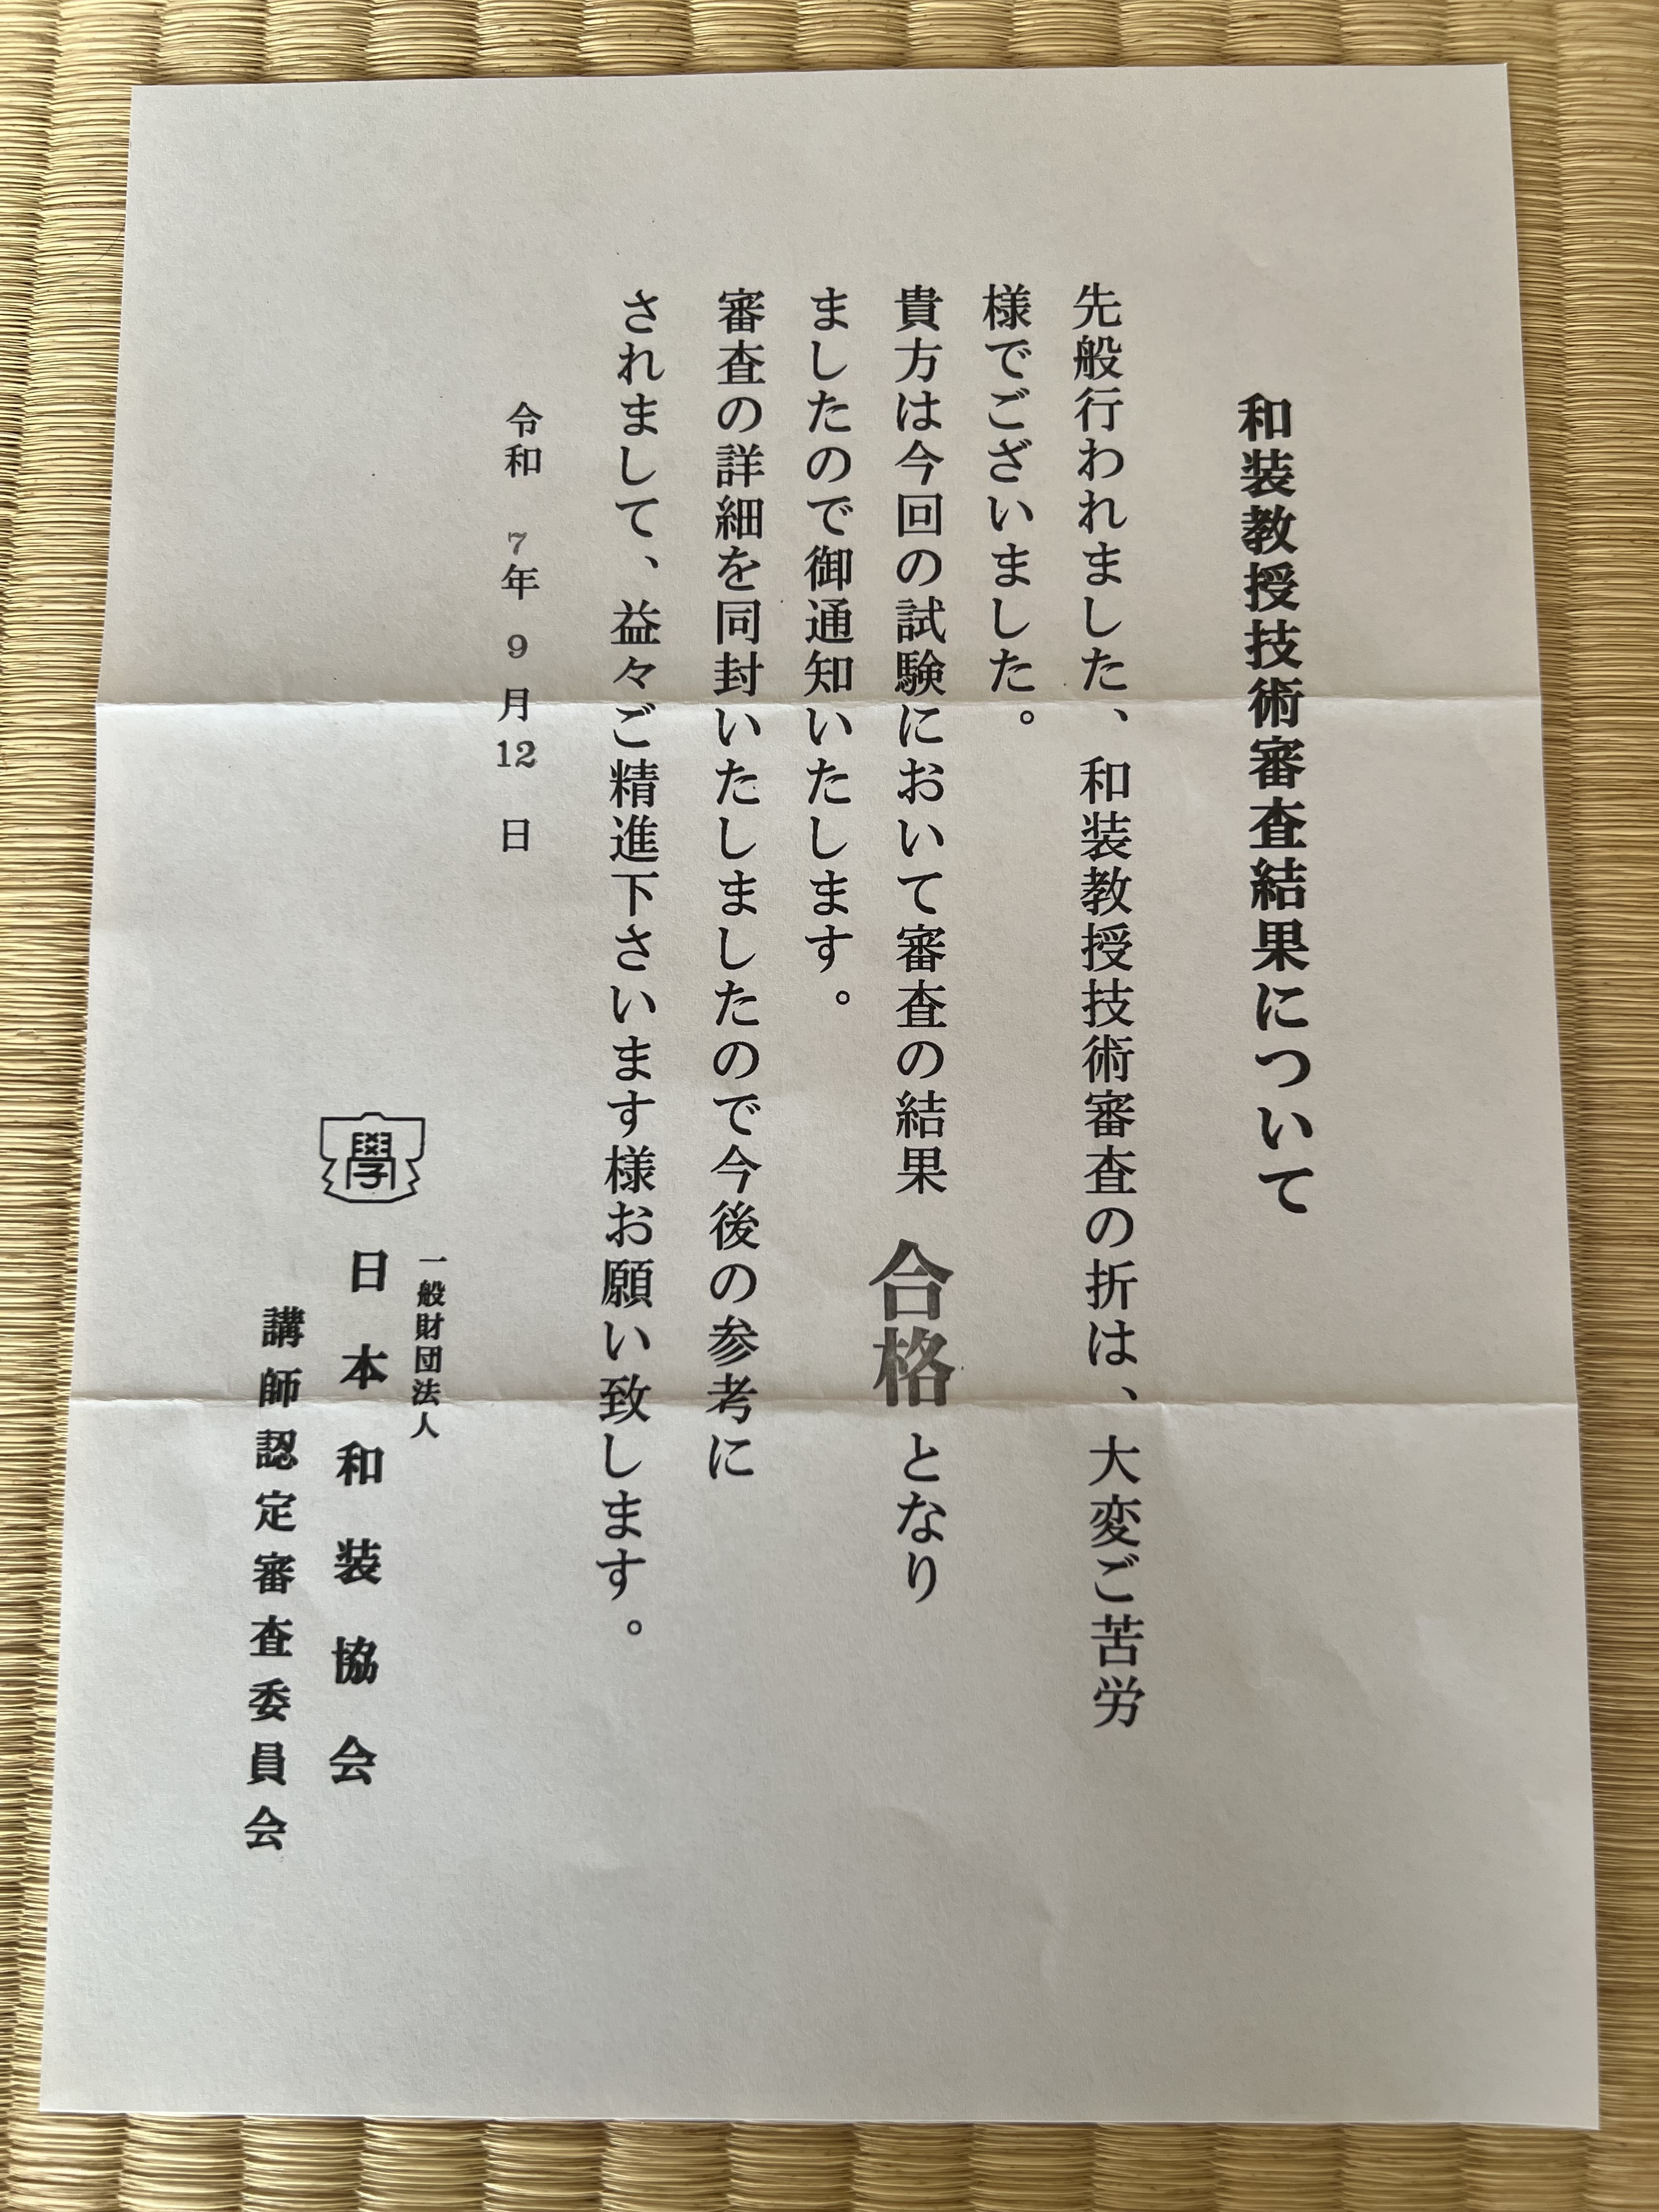 和装教授技術審査結果について
先般行われました、和装教授技術審査の折は、大変ご苦労
様でございました。
貴方は今回の試験において審査の結果 合格 となり
ましたので御通知いたします。
審査の詳細を同封いたしましたので今後の参考に
されまして、益々ご精進下さいます様お願い致します。
令和 7年 9月12日
學
一般財団法人
日本和装協会
講師認定審査委員会